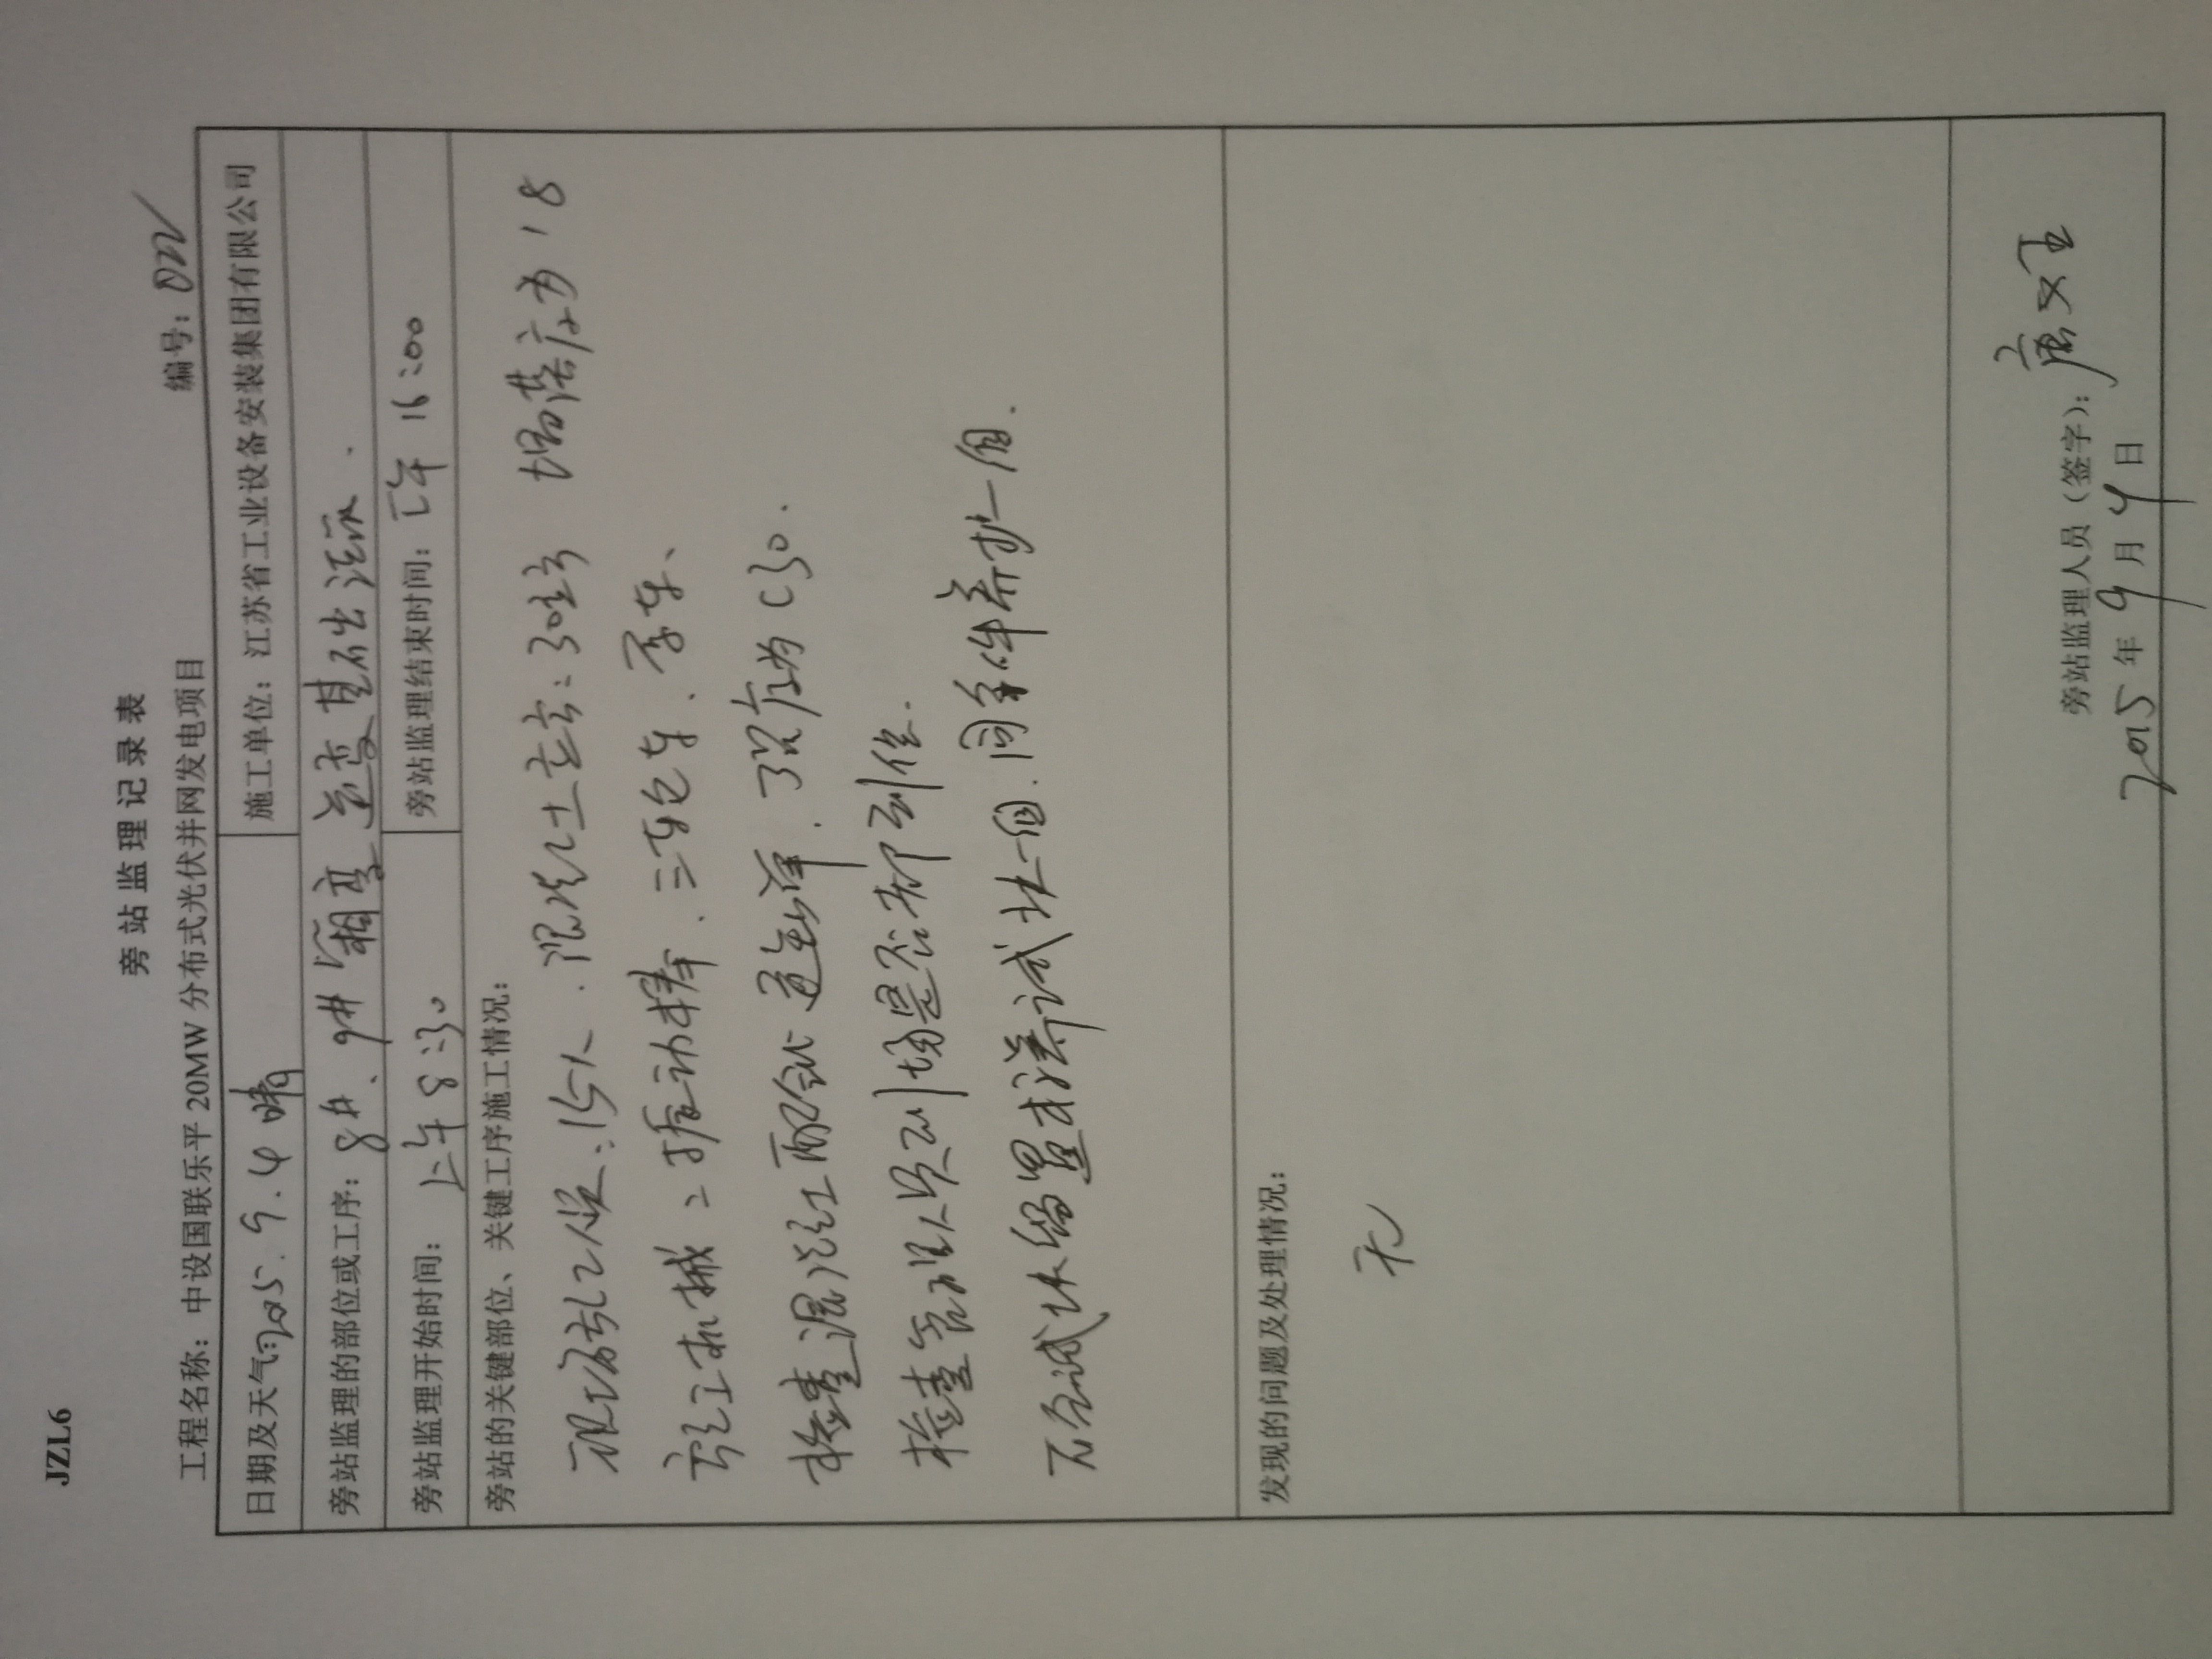 JZL6
旁站监理记录表
编号：022
工程名称：中设国联乐平20MW分布式光伏并网发电项目
日期及天气：2015.9.4 晴
施工单位：江苏省工业设备安装集团有限公司
旁站监理的部位或工序：8#、9#箱变逆变基础浇筑.
旁站监理开始时间：上午8:30
旁站监理结束时间：下午16:00
旁站的关键部位、关键工序施工情况：
现场施工人员：15人. 混凝土方：30立方 塌落度为18
施工机械：振动棒、三轮车、吊车、
检查混凝土配合比通知单. 强度为C30.
检查管理人员现场是否都到位.
混凝土试块留置标养试块一组. 同条件养护一组.
发现的问题及处理情况：
无
旁站监理人员（签字）：唐文
2015年9月4日